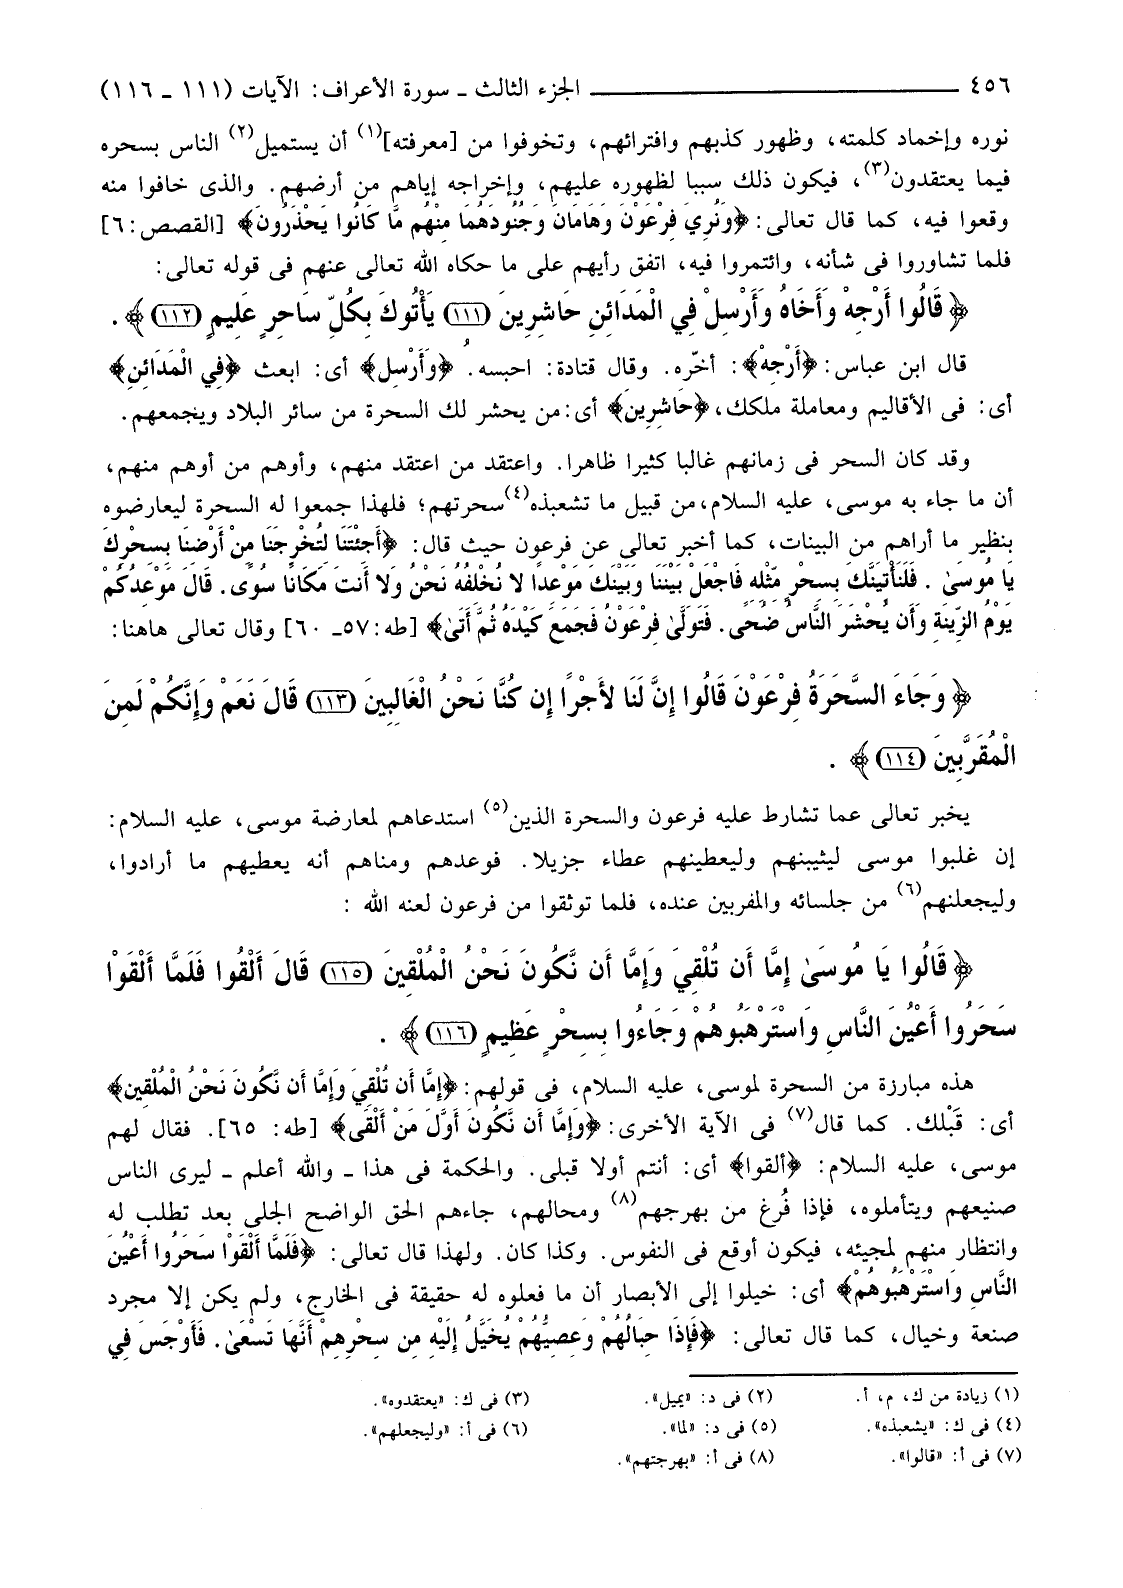 ٤٥٦ ــــــــــــــــــــ الجزء الثالث ـ سورة الأعراف: الآيات (١١١ ـ ١١٦)
نوره وإخماد كلمته، وظهور كذبهم وافترائهم، وتخوفوا من [معرفته](١) أن يستميل(٢) الناس بسحره
فيما يعتقدون(٣)، فيكون ذلك سببا لظهوره عليهم، وإخراجه إياهم من أرضهم. والذى خافوا منه
وقعوا فيه، كما قال تعالى: ﴿وَنُرِيَ فِرْعَوْنَ وَهَامَانَ وَجُنُودَهُمَا مِنْهُم مَّا كَانُوا يَحْذَرُونَ﴾ [القصص:٦]
فلما تشاوروا فى شأنه، وائتمروا فيه، اتفق رأيهم على ما حكاه الله تعالى عنهم فى قوله تعالى:
﴿قَالُوا أَرْجِهْ وَأَخَاهُ وَأَرْسِلْ فِي الْمَدَائِنِ حَاشِرِينَ (١١١) يَأْتُوكَ بِكُلِّ سَاحِرٍ عَلِيمٍ (١١٢)﴾.
قال ابن عباس: ﴿أَرْجِهْ﴾: أخّره. وقال قتادة: احبسه. ﴿وَأَرْسِلْ﴾ أى: ابعث ﴿فِي الْمَدَائِنِ﴾
أى: فى الأقاليم ومعاملة ملكك، ﴿حَاشِرِينَ﴾ أى:من يحشر لك السحرة من سائر البلاد ويجمعهم.
وقد كان السحر فى زمانهم غالبا كثيرا ظاهرا. واعتقد من اعتقد منهم، وأوهم من أوهم منهم،
أن ما جاء به موسى، عليه السلام،من قبيل ما تشعبذه(٤)سحرتهم؛ فلهذا جمعوا له السحرة ليعارضوه
بنظير ما أراهم من البينات، كما أخبر تعالى عن فرعون حيث قال: ﴿أَجِئْتَنَا لِتُخْرِجَنَا مِنْ أَرْضِنَا بِسِحْرِكَ
يَا مُوسَىٰ . فَلَنَأْتِيَنَّكَ بِسِحْرٍ مِّثْلِهِ فَاجْعَلْ بَيْنَنَا وَبَيْنَكَ مَوْعِدًا لا نُخْلِفُهُ نَحْنُ وَلا أَنتَ مَكَانًا سُوًى. قَالَ مَوْعِدُكُمْ
يَوْمُ الزِّينَةِ وَأَن يُحْشَرَ النَّاسُ ضُحًى. فَتَوَلَّىٰ فِرْعَوْنُ فَجَمَعَ كَيْدَهُ ثُمَّ أَتَىٰ﴾ [طه:٥٧ـ ٦٠] وقال تعالى هاهنا:
﴿وَجَاءَ السَّحَرَةُ فِرْعَوْنَ قَالُوا إِنَّ لَنَا لأَجْرًا إِن كُنَّا نَحْنُ الْغَالِبِينَ (١١٣) قَالَ نَعَمْ وَإِنَّكُمْ لَمِنَ
الْمُقَرَّبِينَ (١١٤)﴾ .
يخبر تعالى عما تشارط عليه فرعون والسحرة الذين(٥) استدعاهم لمعارضة موسى، عليه السلام:
إن غلبوا موسى ليثيبنهم وليعطينهم عطاء جزيلا. فوعدهم ومناهم أنه يعطيهم ما أرادوا،
وليجعلنهم(٦) من جلسائه والمفربين عنده، فلما توثقوا من فرعون لعنه الله :
﴿قَالُوا يَا مُوسَىٰ إِمَّا أَن تُلْقِيَ وَإِمَّا أَن نَّكُونَ نَحْنُ الْمُلْقِينَ (١١٥) قَالَ أَلْقُوا فَلَمَّا أَلْقَوْا
سَحَرُوا أَعْيُنَ النَّاسِ وَاسْتَرْهَبُوهُمْ وَجَاءُوا بِسِحْرٍ عَظِيمٍ (١١٦)﴾ .
هذه مبارزة من السحرة لموسى، عليه السلام، فى قولهم: ﴿إِمَّا أَن تُلْقِيَ وَإِمَّا أَن نَّكُونَ نَحْنُ الْمُلْقِينَ﴾
أى: قَبْلك. كما قال(٧) فى الآية الأخرى: ﴿وَإِمَّا أَن نَّكُونَ أَوَّلَ مَنْ أَلْقَى﴾ [طه: ٦٥]. فقال لهم
موسى، عليه السلام: ﴿ألقوا﴾ أى: أنتم أولا قبلى. والحكمة فى هذا ـ والله أعلم ـ ليرى الناس
صنيعهم ويتأملوه، فإذا فُرغ من بهرجهم(٨) ومحالهم، جاءهم الحق الواضح الجلى بعد تطلب له
وانتظار منهم لمجيئه، فيكون أوقع فى النفوس. وكذا كان. ولهذا قال تعالى: ﴿فَلَمَّا أَلْقَوْا سَحَرُوا أَعْيُنَ
النَّاسِ وَاسْتَرْهَبُوهُمْ﴾ أى: خيلوا إلى الأبصار أن ما فعلوه له حقيقة فى الخارج، ولم يكن إلا مجرد
صنعة وخيال، كما قال تعالى: ﴿فَإِذَا حِبَالُهُمْ وَعِصِيُّهُمْ يُخَيَّلُ إِلَيْهِ مِن سِحْرِهِمْ أَنَّهَا تَسْعَىٰ. فَأَوْجَسَ فِي
(١) زيادة من ك، م، أ. (٢) فى د: «يميل». (٣) فى ك: «يعتقدوه».
(٤) فى ك: «يشعبذه». (٥) فى د: «لما». (٦) فى أ: «وليجعلهم».
(٧) فى أ: «قالوا». (٨) فى أ: «بهرجتهم».